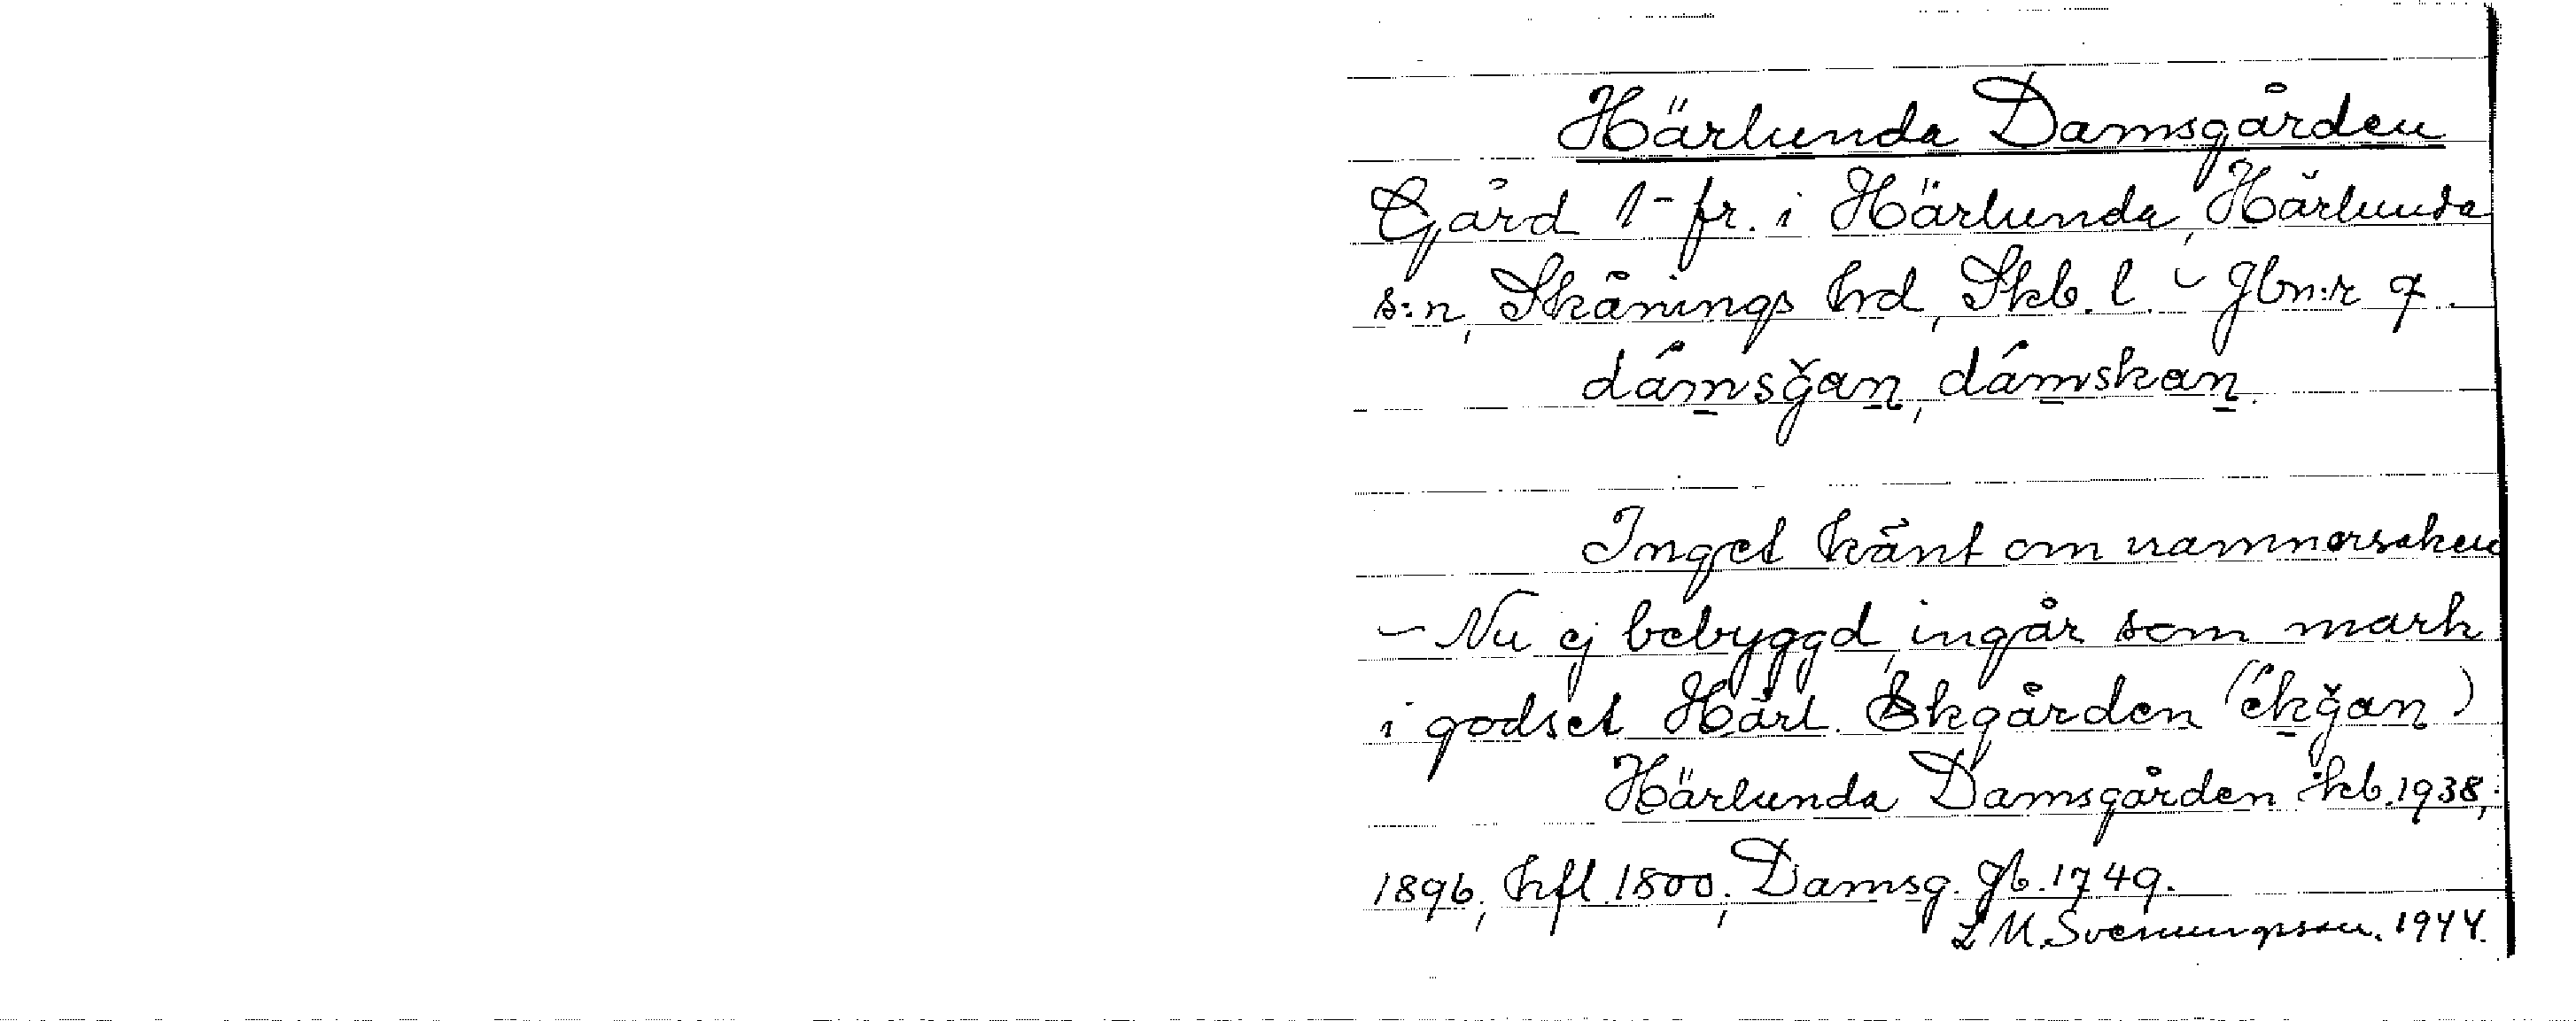 Härlunda Damsgården
Gård 1- fr. i Härlunda, Härlunda
s:n, Skånings hrd, Skb. l. – Jbn:r 7.
dámsğan, dámskan.
Inget känt om namnorsaken
– Nu ej bebyggd, ingår som mark
i godset Härl. Ekgården (ékğan)
Härlunda Damsgården kb. 1938,
1896, hfl 1800; Damsg. Jb. 1749.
L M. Svenungsson. 1944.